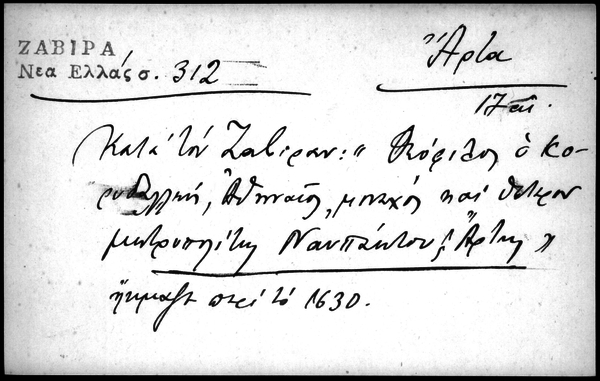 ΖΑΒΙΡΑ
Νεα Ελλάς σ. 312
Ἄρτα
17 αι.
Κατά τόν Ζαβίραν: « Θεόφιλος ὁ Κο-
ρυδαλλεύς, Ἀθηναῖος, μοναχός καί ὕστερον
μητροπολίτης Ναυπάκτου ἤ Ἄρτης »
ἤκμασε περί τό 1630.